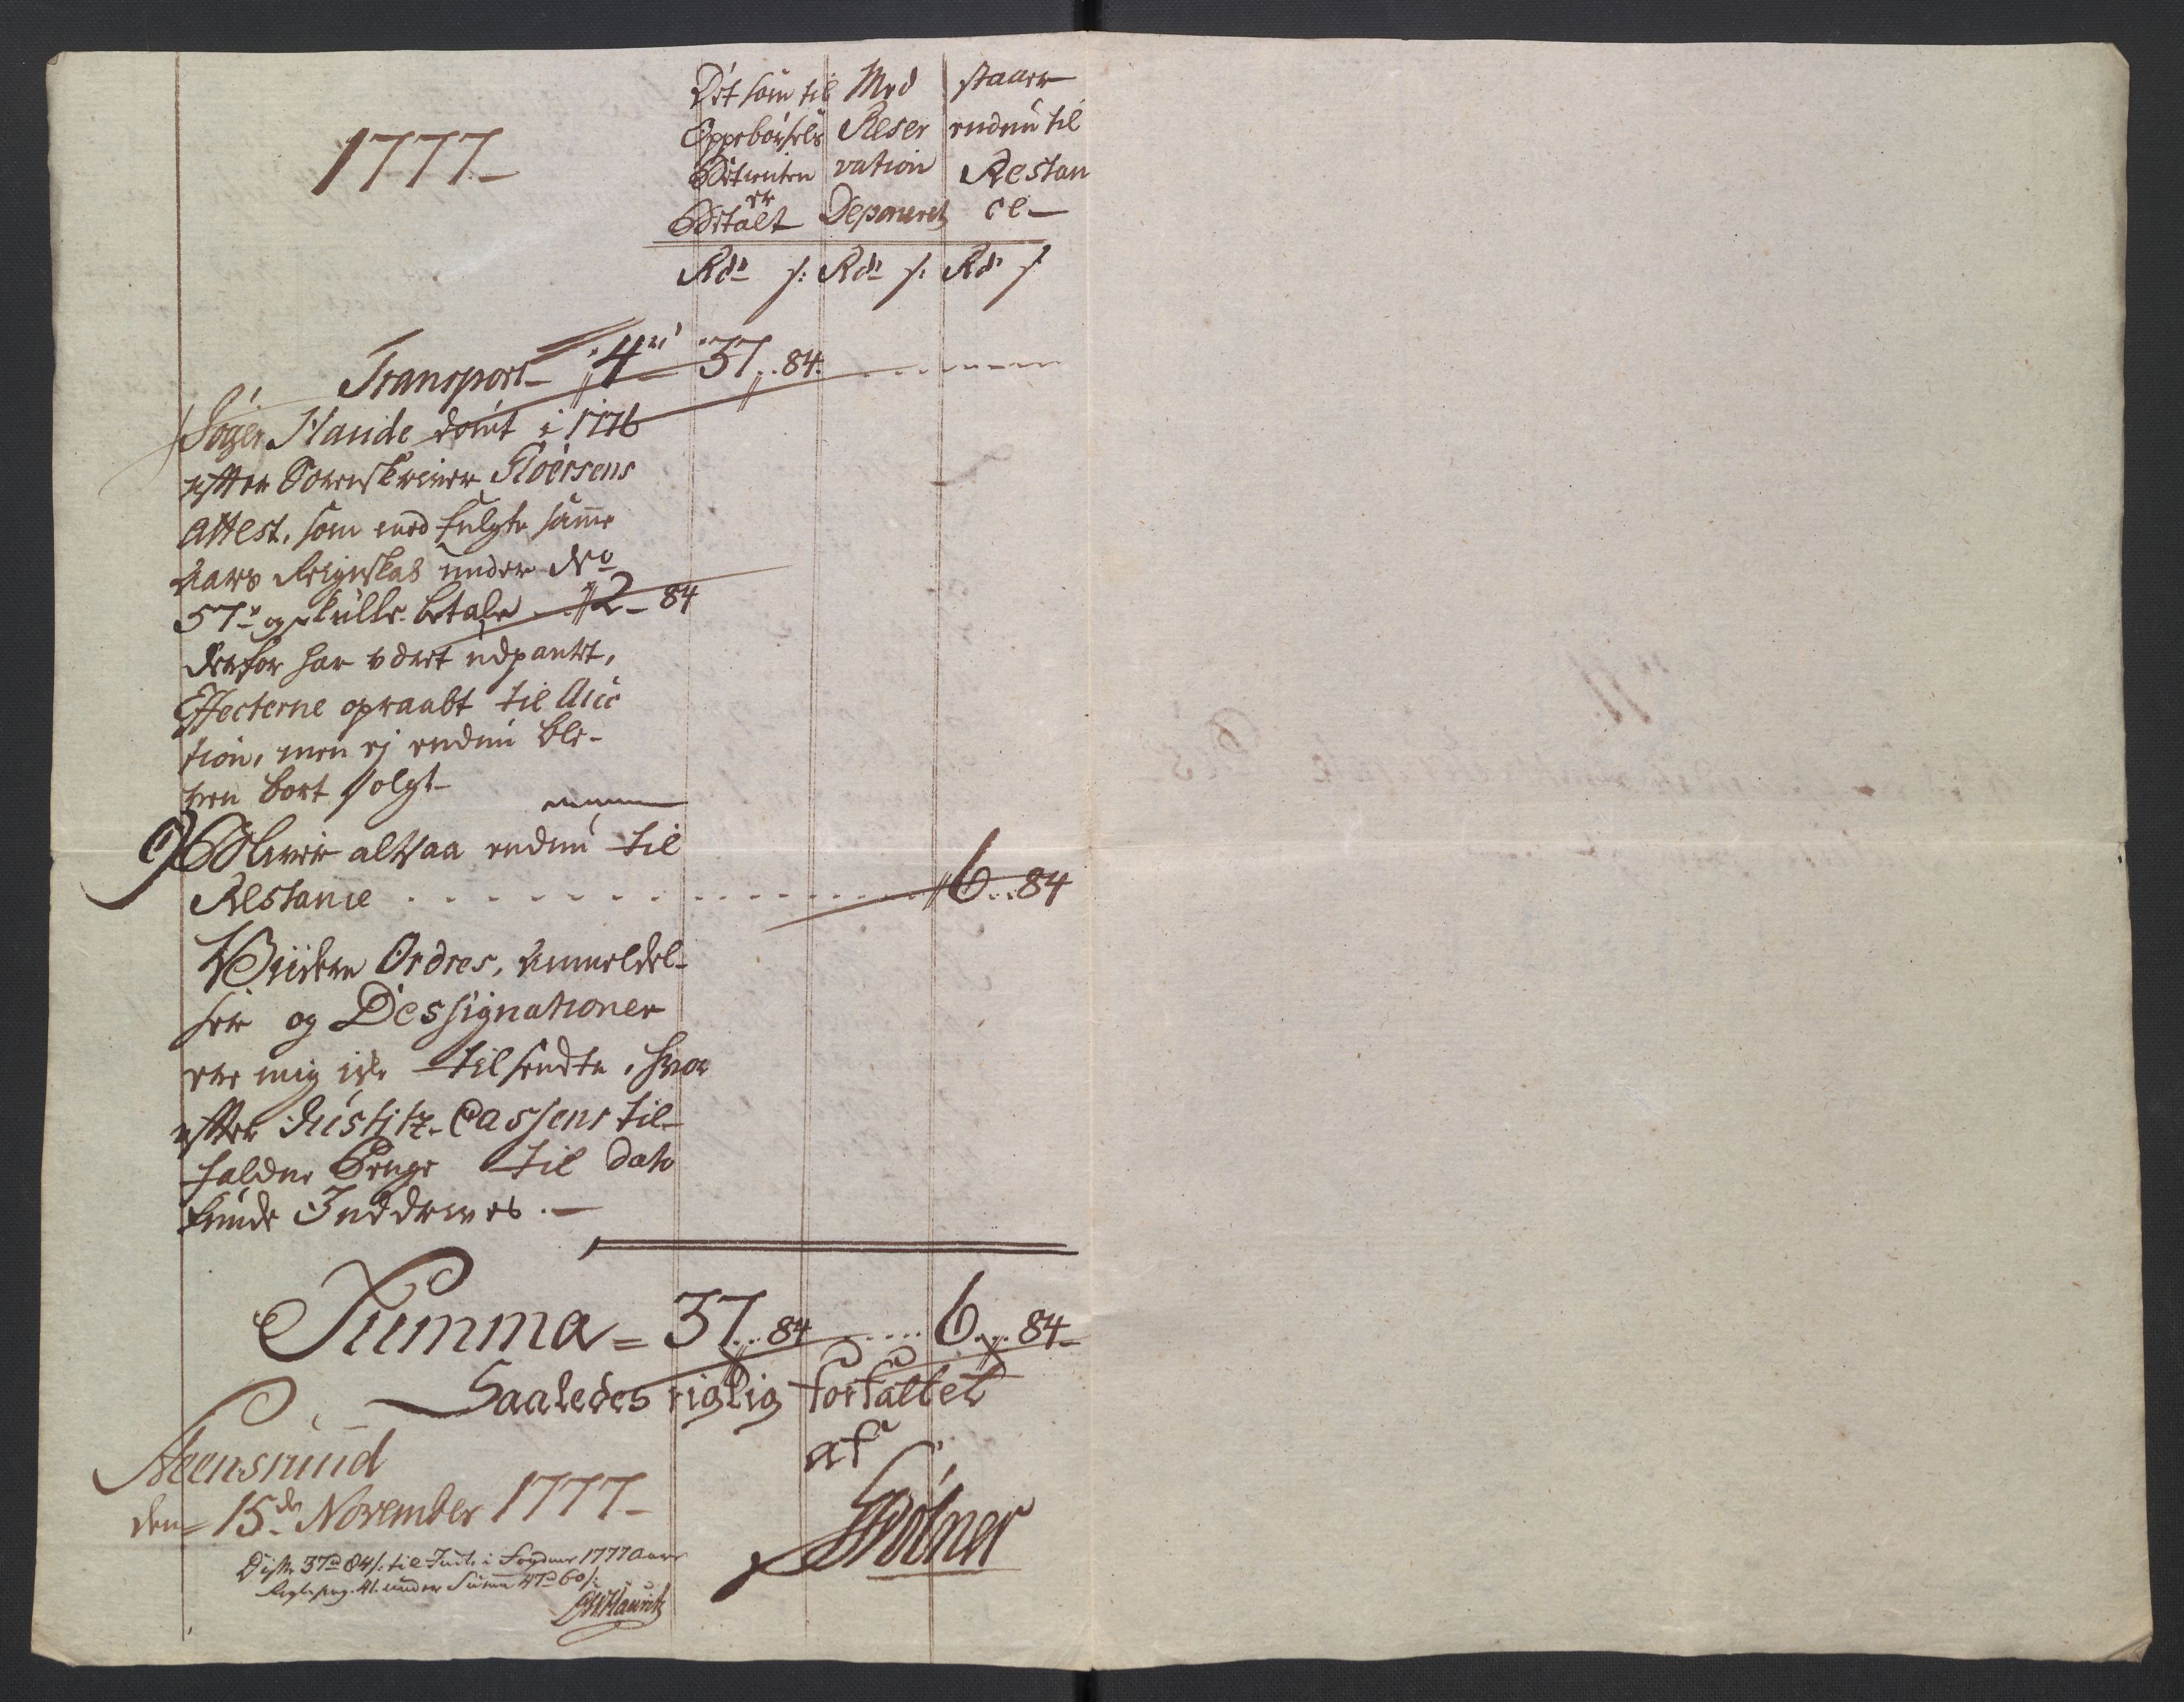 1777-
Det som til
Oppebørsels
Betienten
er
Betalt
Med
Reser
vation
Deponeret
staaer
endnu til
Restan
ce-
Rdr s: Rdr s: Rdr s
Transport 4 37..84.
Haude domt i 1776
efter Sorenskriver Floersens
Attest, som med fulgte samme
Aars Reignskab under No
57de og skulle betale 2-84
derfor har været udpantet,
Effecterne opraabt til Auc
tion, men ej endnu ble-
ven bort solgt
Bliver altsaa endnu til
Restance . . . 6..84
Viidere Ordres, Anmeldel-
ser og Dessignationer
ere mig ikke tilsendte, hvor
efter Justitz-Cassens til-
faldne Penge til dato
kunde Inddrives.-
Summa = 37..84 .... 6...84-
Saaledes rigtig forfattet
af
Steensrud
den 15de November 1777-
Disse 37rd 84s: til Indt. i Fogdens 1777 Aars
Regnsk pag. 41. under Summa 47rd 60s: